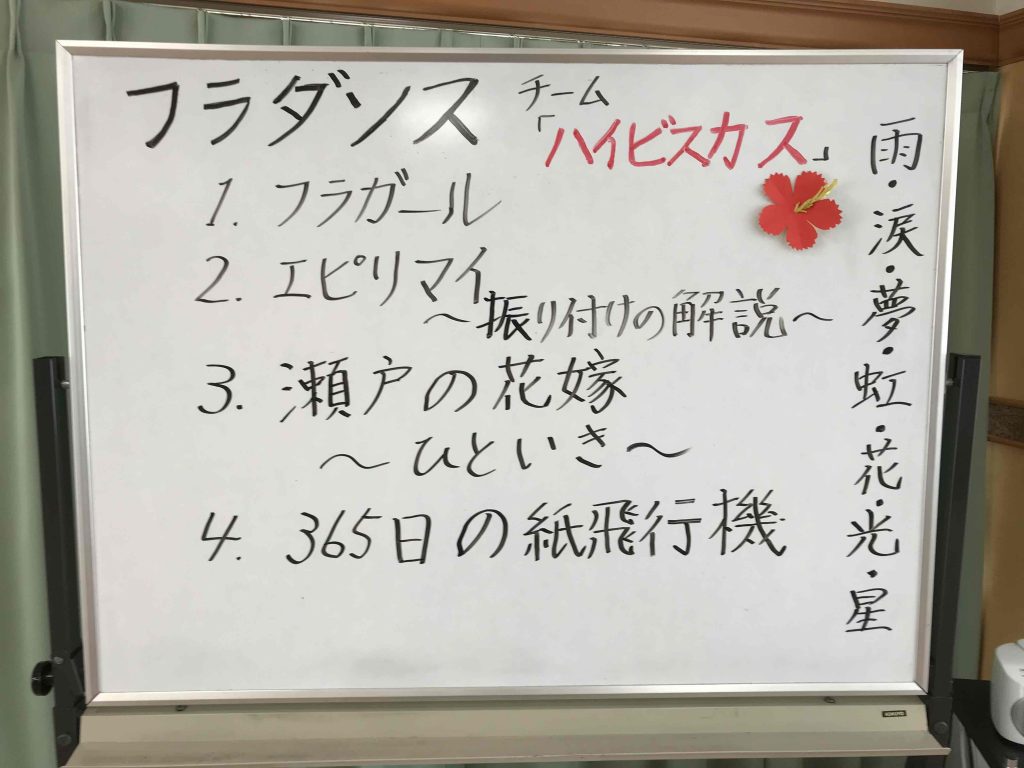 フラダンス チーム
「ハイビスカス」
1. フラガール
2. エピリマイ
～振り付けの解説～
3. 瀬戸の花嫁
～ひといき～
4. 365日の紙飛行機
雨・涙・夢・虹・花・光・星
KOKUYO